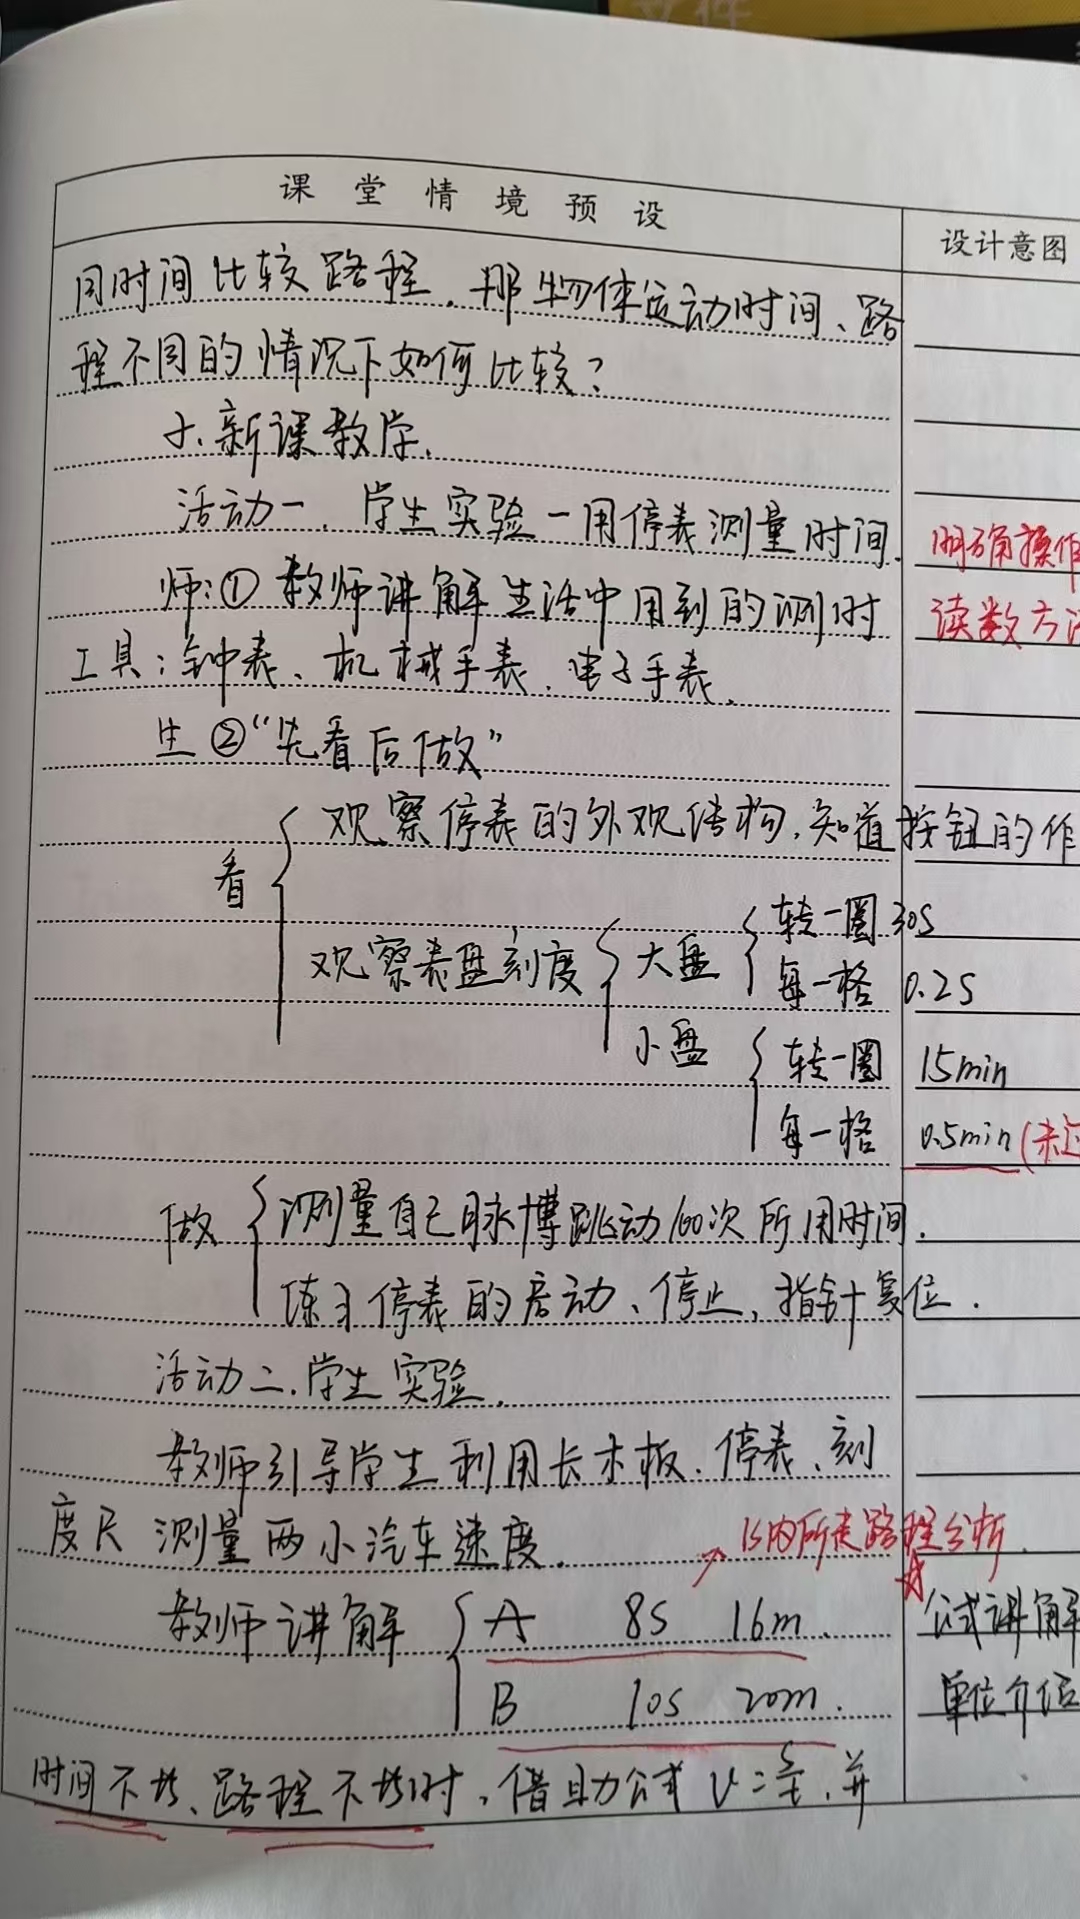 文件
课堂情境预设
设计意图
同时间比较路程,那物体运动时间、路
程不同的情况下如何比较?
新课教学.
活动一. 学生实验一用停表测量时间.
明确操作
师:① 教师讲解生活中用到的测时
读数方法
工具:钟表、机械手表、电子手表.
生②“先看后做”
观察停表的外观结构,知道按钮的作
看
转一圈 30s
观察表盘刻度
大盘
每一格 0.2s
小盘
转一圈 15min
每一格 0.5min
测量自己脉搏跳动100次所用时间.
做
练习停表的启动、停止、指针复位.
活动二.学生实验.
教师引导学生利用长木板、停表、刻
度尺测量两小汽车速度.
1s内所走路程分析.
教师讲解
A 8s 16m.
公式讲解
B 10s 20m.
单位介绍
时间不等、路程不等时,借助公式 v=s/t,并